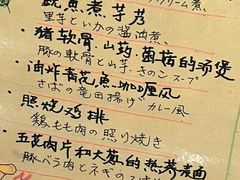 クリーム煮
鱿鱼煮芋艿
里芋といかの醤油煮
猪软骨.山药.菌菇的汤煲
豚の軟骨と山芋、きのこスープ
油炸青花鱼.咖喱风
さばの竜田揚げ カレー風
照烧鸡排
鶏もも肉の照り焼き
五花肉片和大葱的热荞麦面
豚バラ肉とネギの